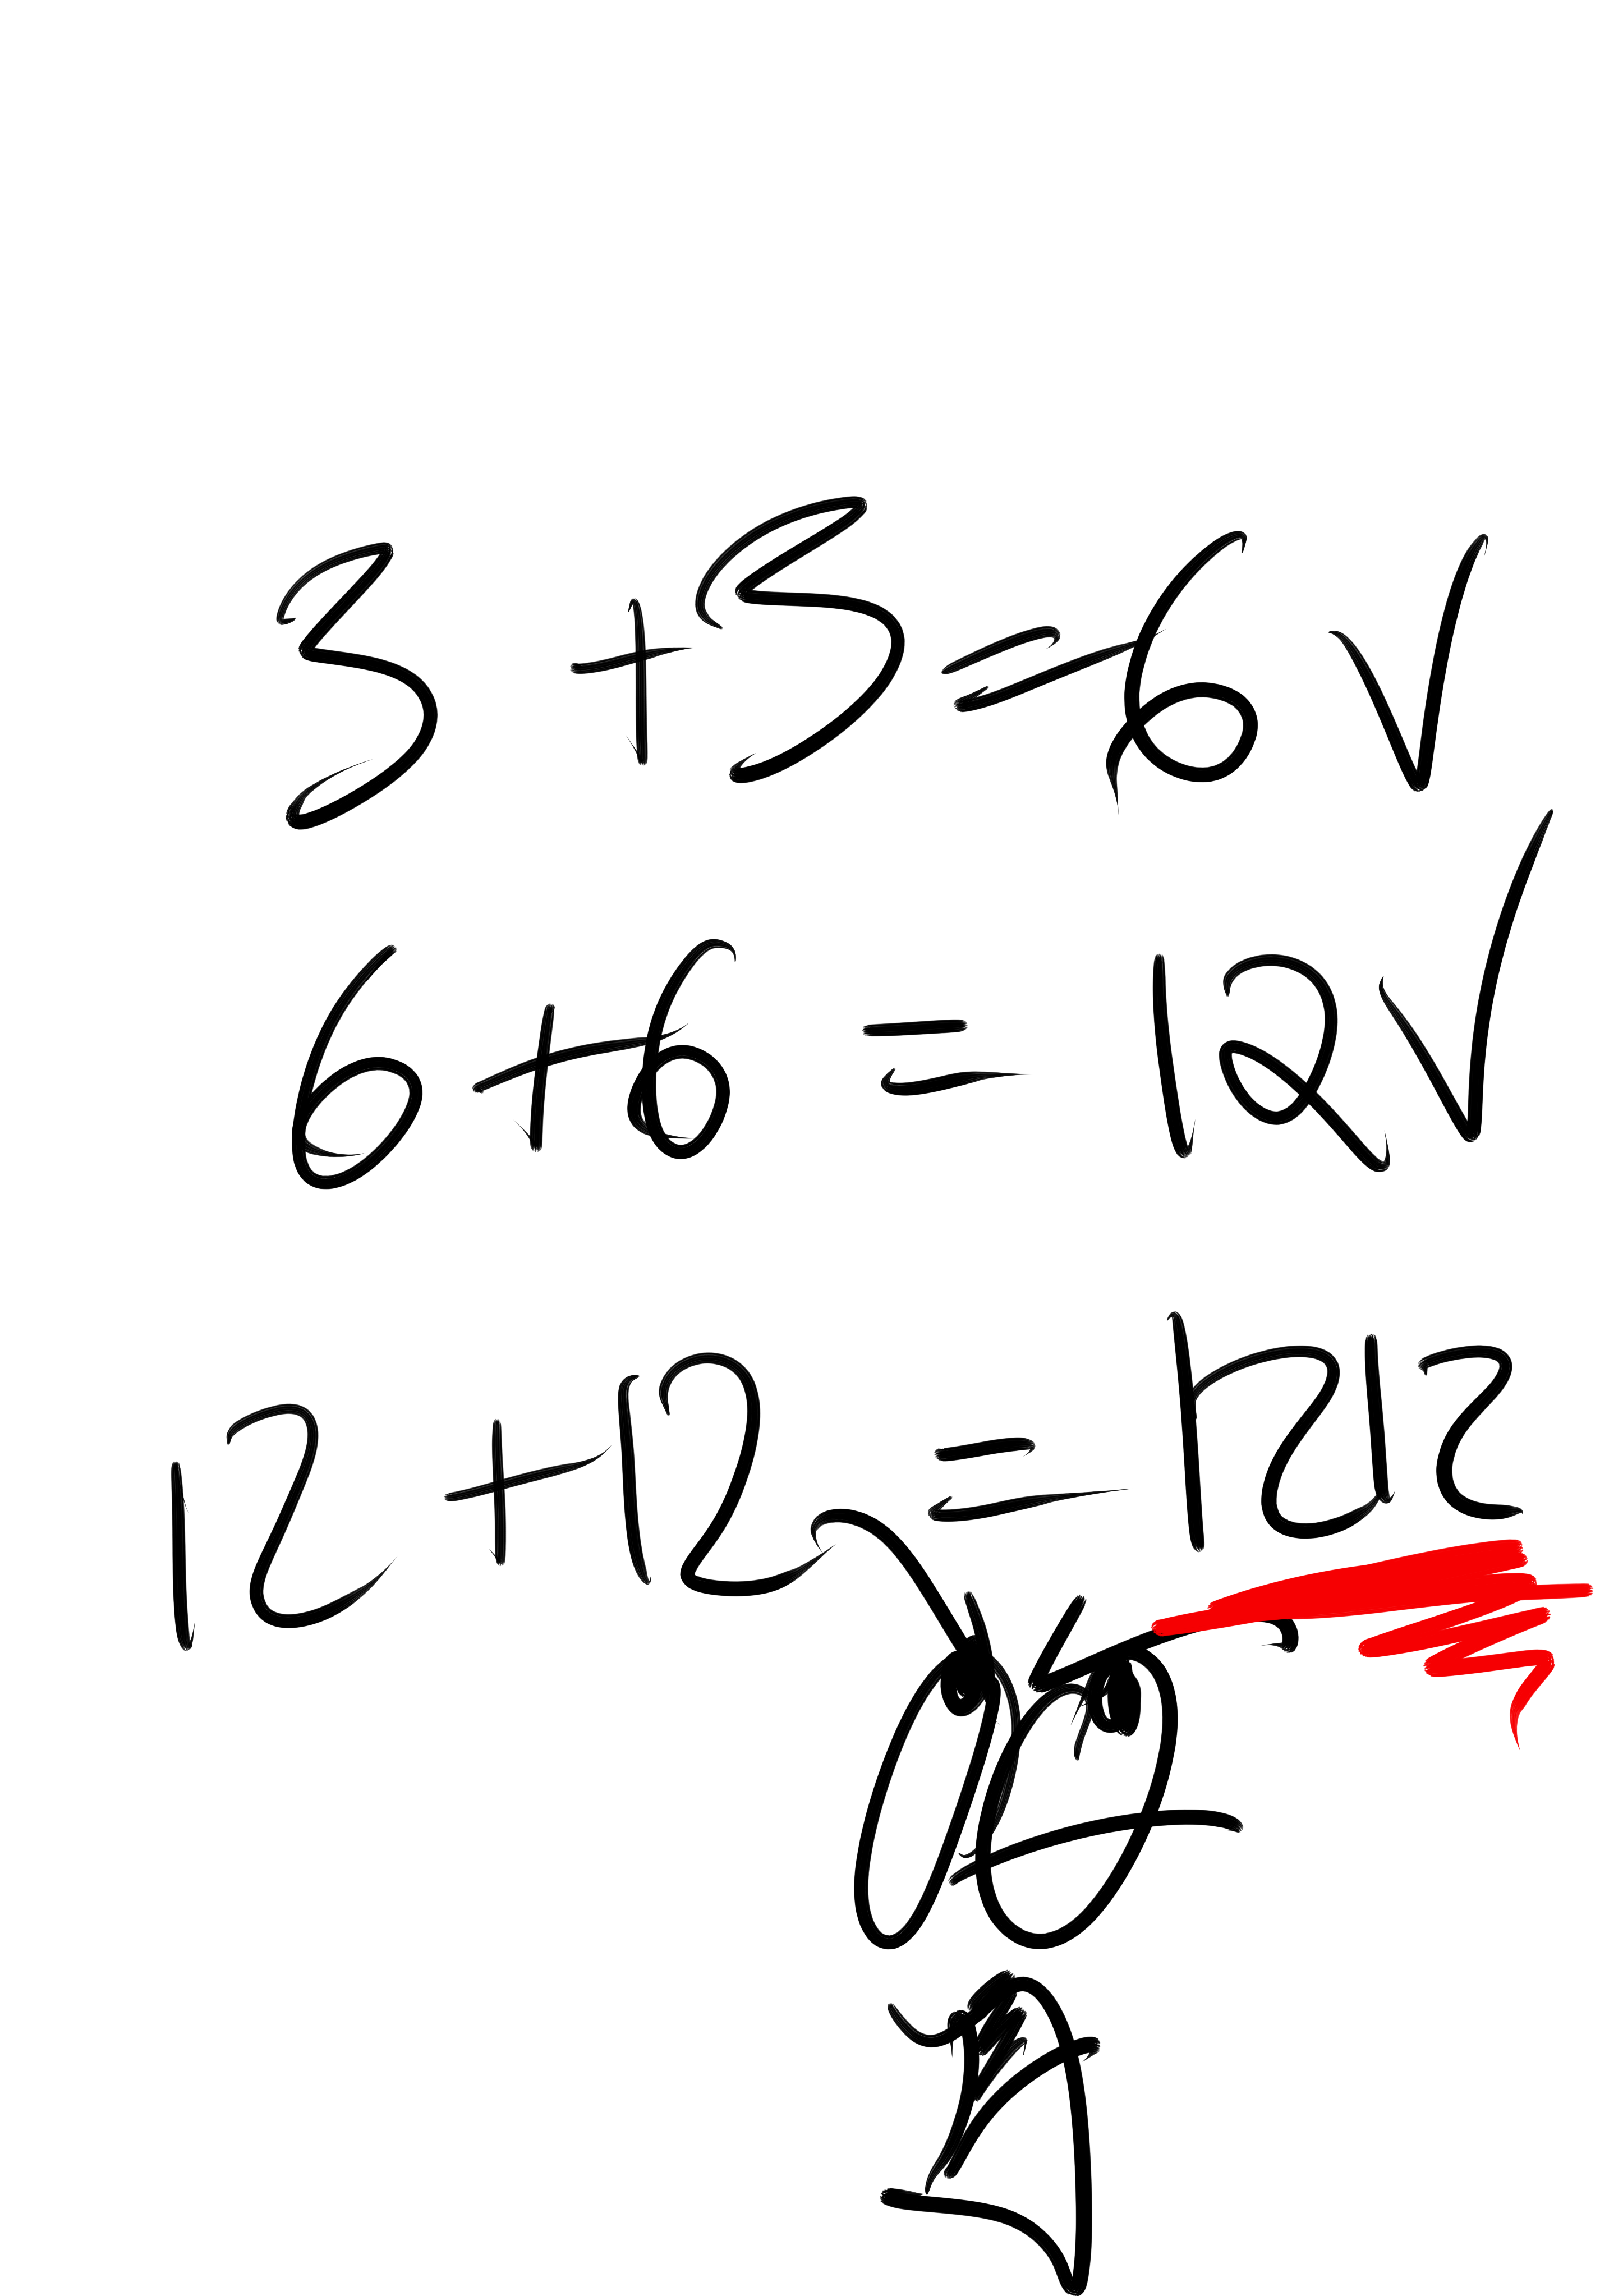 3+3=6√
6+6=12√
12+12=1212